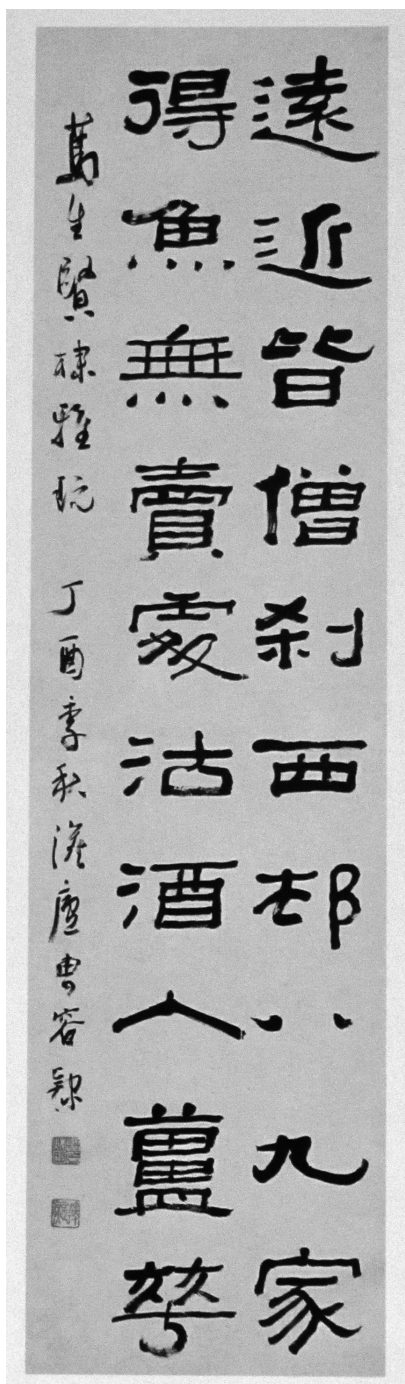 遠近皆僧刹西邨八九家
得魚無賣處沽酒入蘆華
萬生賢棣雅玩 丁酉季秋澹廬曹容隸